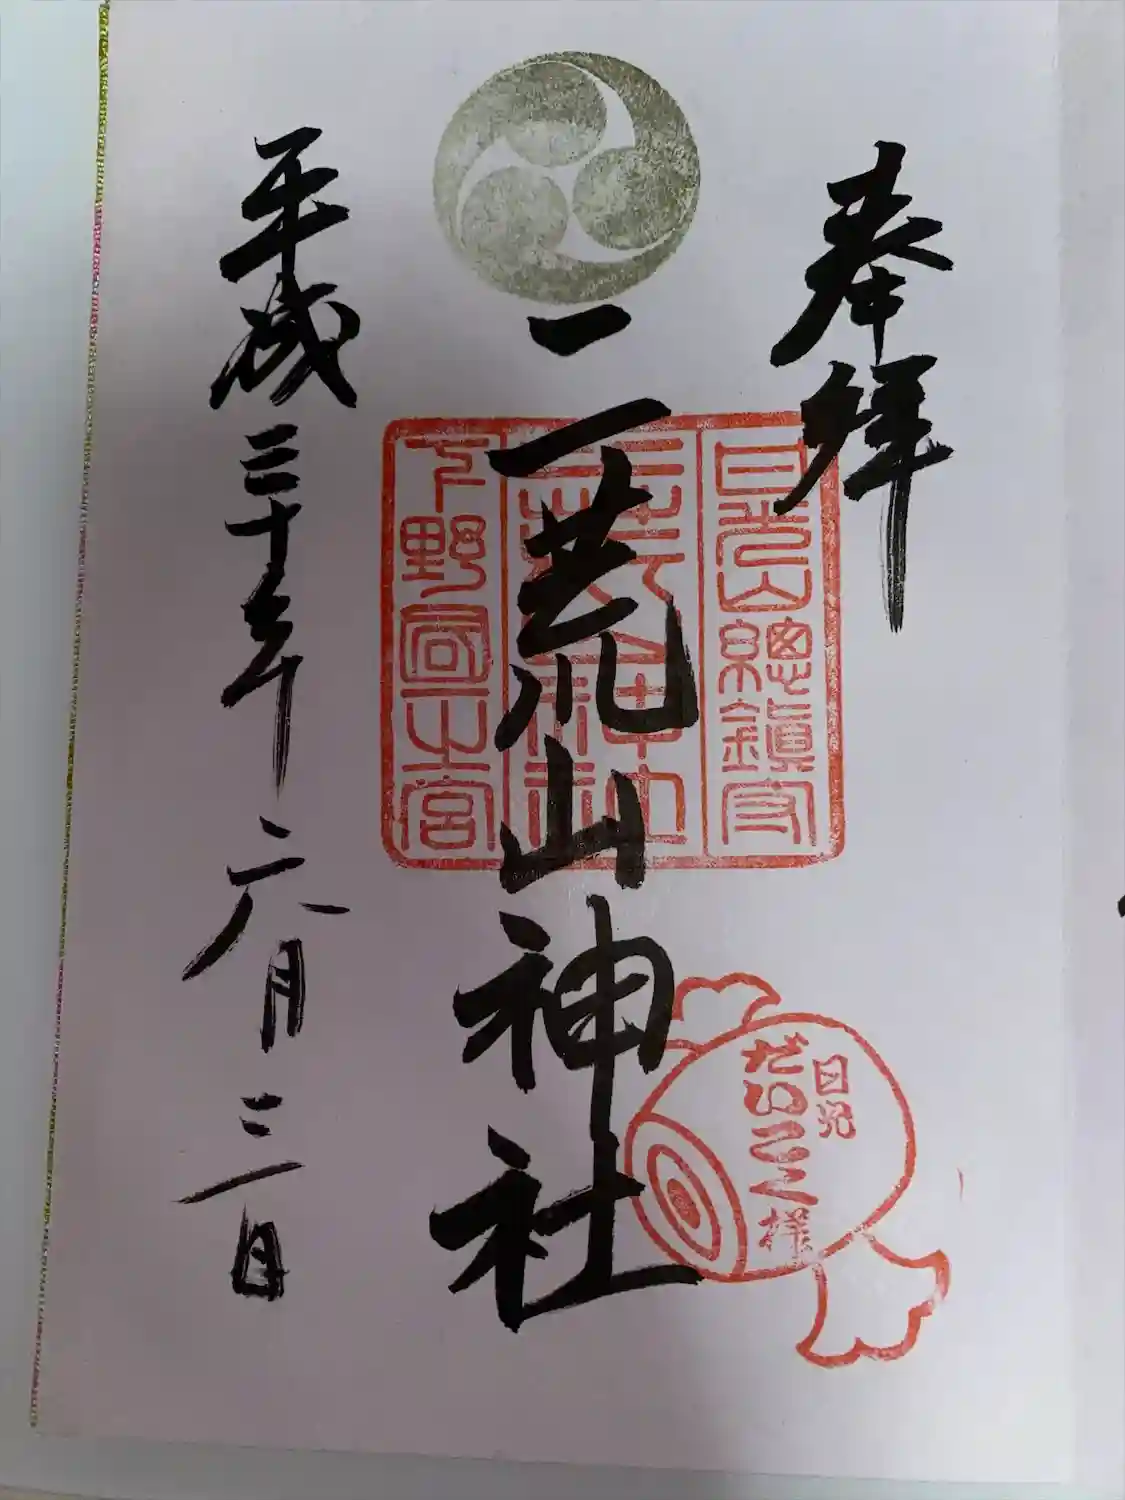 奉拝
日光山總鎮守
二荒山神社
下野國一之宮
二荒山神社
日光
だいこく様
平成三十年六月三日